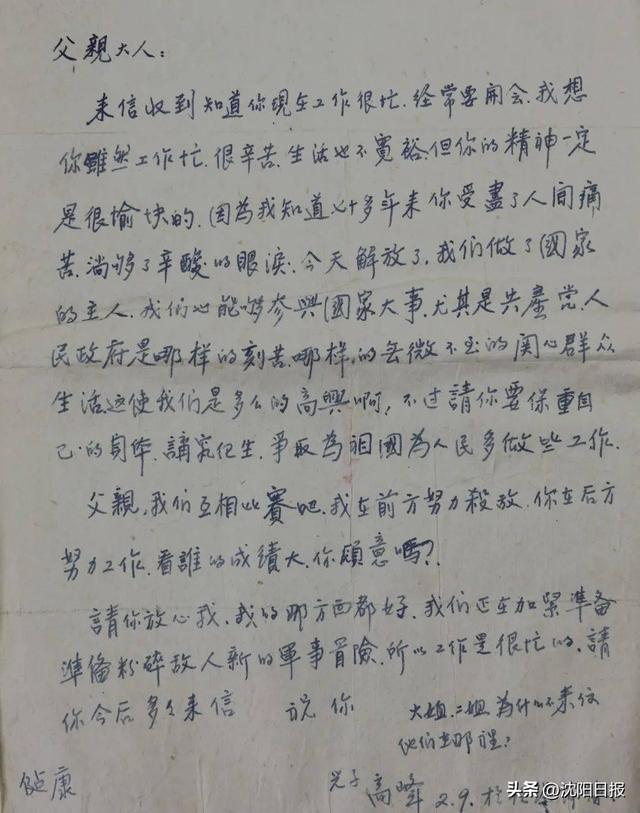 父親大人：
来信收到知道你現在工作很忙.经常要開会.我想
你雖然工作忙.很辛苦.生活也不寬裕.但你的精神一定
是很愉快的.因為我知道几十多年来你受盡了人间痛
苦.淌够了辛酸的眼淚.今天解放了.我们做了國家
的主人.我们也能够参與國家大事.尤其是共產党.人
民政府是那样的刻苦.那样的無微不至的関心群众
生活这使我们是多么的高興啊，不过請你要保重自
己的身体.講究卫生.爭取為祖國為人民多做些工作.
父親，我们互相比賽吧.我在前方努力殺敌.你在后方
努力工作.看誰的成績大.你願意嗎？
請你放心我.我的那方面都好.我们正在加緊準备
準备粉碎敌人新的軍事冒險.所以工作是很忙的.請
你今后多多来信 祝你
大姐.二姐為什么不来信
他们在那裡？
健康
兒子 高峰 2.9.于
头条@沈阳日报